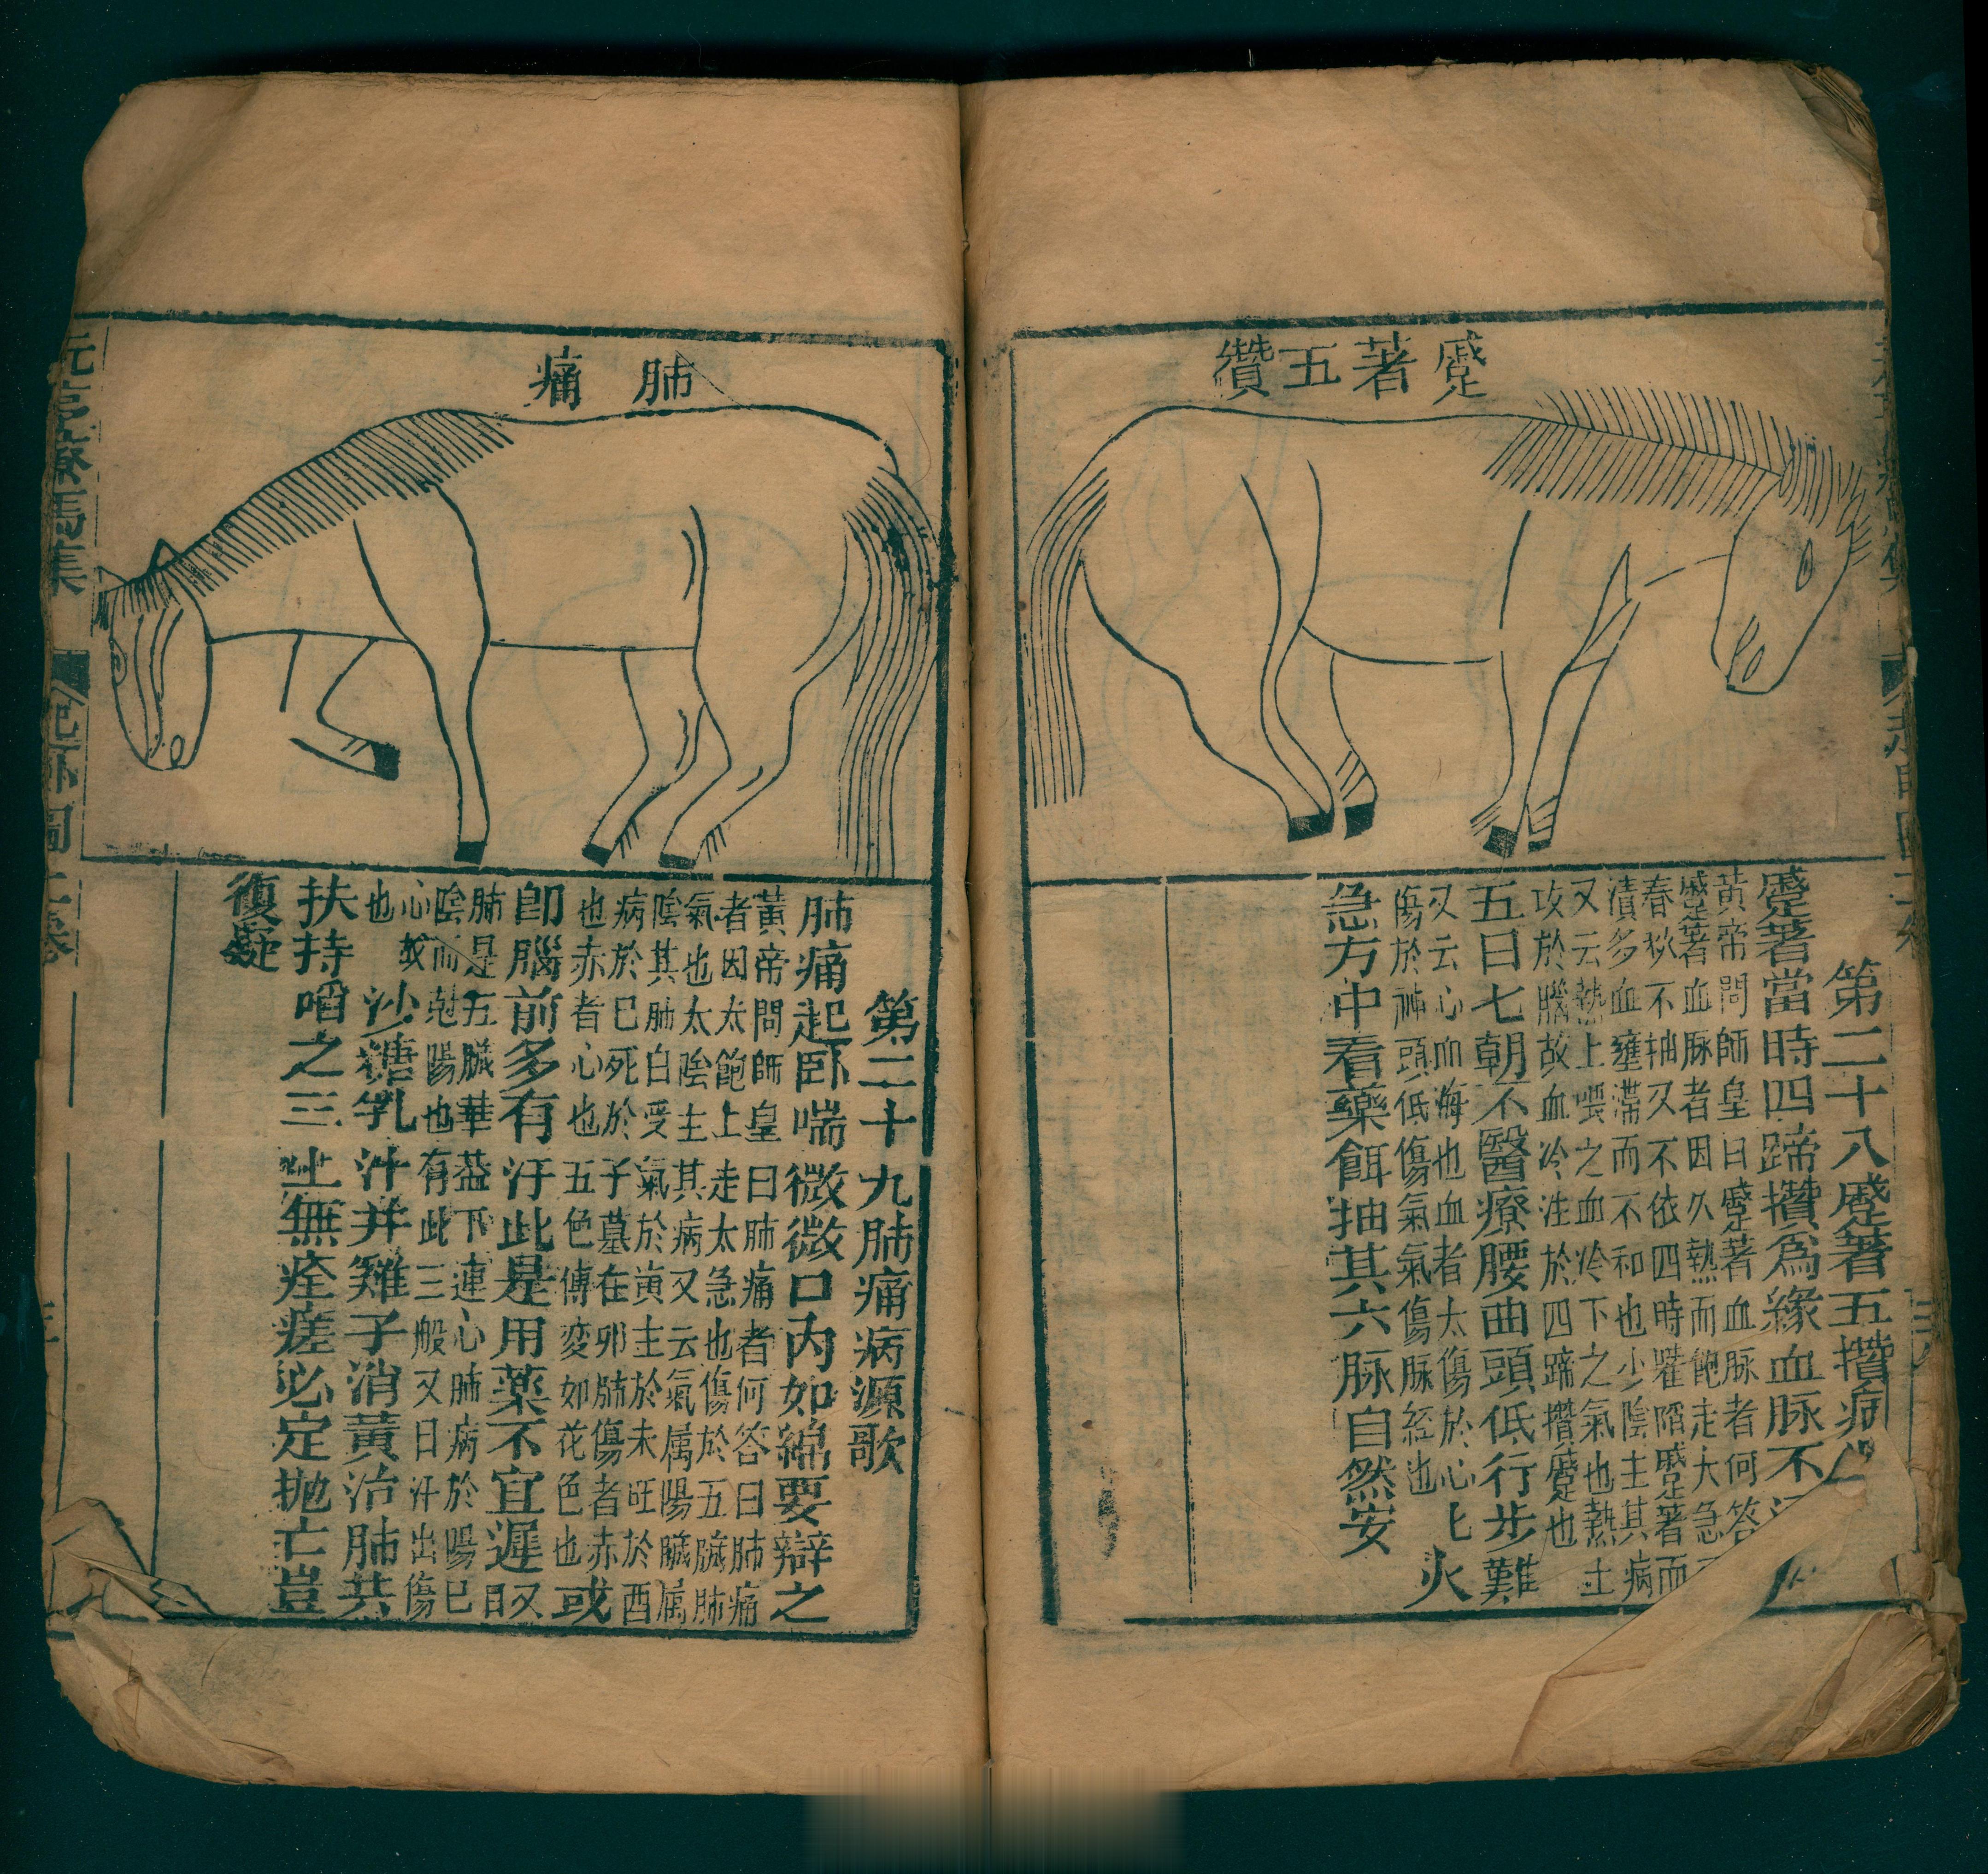 蹙著五攢
第二十八蹙著五攢病
蹙著當時四蹄攢爲緣血脉不
黃帝問師皇曰蹙著血脉者何答
蹙著血脉者因久熱而飽走大急
春狄不抽又不依四時㽷䧟蹙著而
漬多血壅滞而不和也少陰主其病
又云熱上喂之血冷下之氣也熱土
攻於腦故血冷注於四蹄攢蹙也
五日七朝不醫療腰曲頭低行步難
又云心血海也血者太傷於心
傷於神頭低傷氣氣傷脉經也
火
急方中看藥餌抽其六脉自然安
肺痛
第二十九肺痛病源歌
肺痛起卧喘微微口內如綿要辯之
黃帝問師皇曰肺痛者何答曰肺痛
者因太飽上走太急也傷於五臟肺
氣也太陰主其病又云氣属陽臟属
陰其肺白受氣於寅主於未旺於酉
病於巳死於子墓在卯肺傷者赤
也赤者心也五色傳变如花色也
或
卽腦前多有汗此是用藥不宜遲
又曰
肺是五臟華葢下連心肺病於陽巳
陰而尅陽也有此三般又曰汗出傷
心故
也
沙糖乳汁并雞子消黃治肺共
扶持啗之三上無痊瘥必定抛亡豈
復疑
元亨療馬集